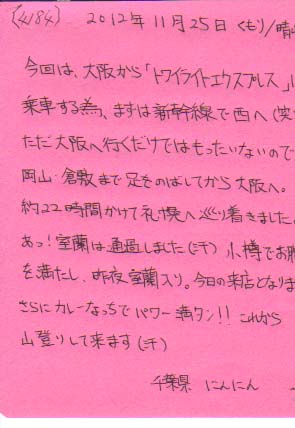 (4184) 2012年11月25日 くもり/晴
今回は、大阪から「トワイライトエクスプレス」に
乗車する為、まずは新幹線で西へ(笑
ただ大阪へ行くだけではもったいないので
岡山・倉敷まで足をのばしてから大阪へ。
約22時間かけて札幌へ巡り着きました。
あっ!室蘭は通過しました(汗) 小樽でお腹
を満たし、昨夜室蘭入り。今日の来店となりま
さらにカレーなっちでパワー満タン!! これから
山登りして来ます(汗)
千葉県 にんにん